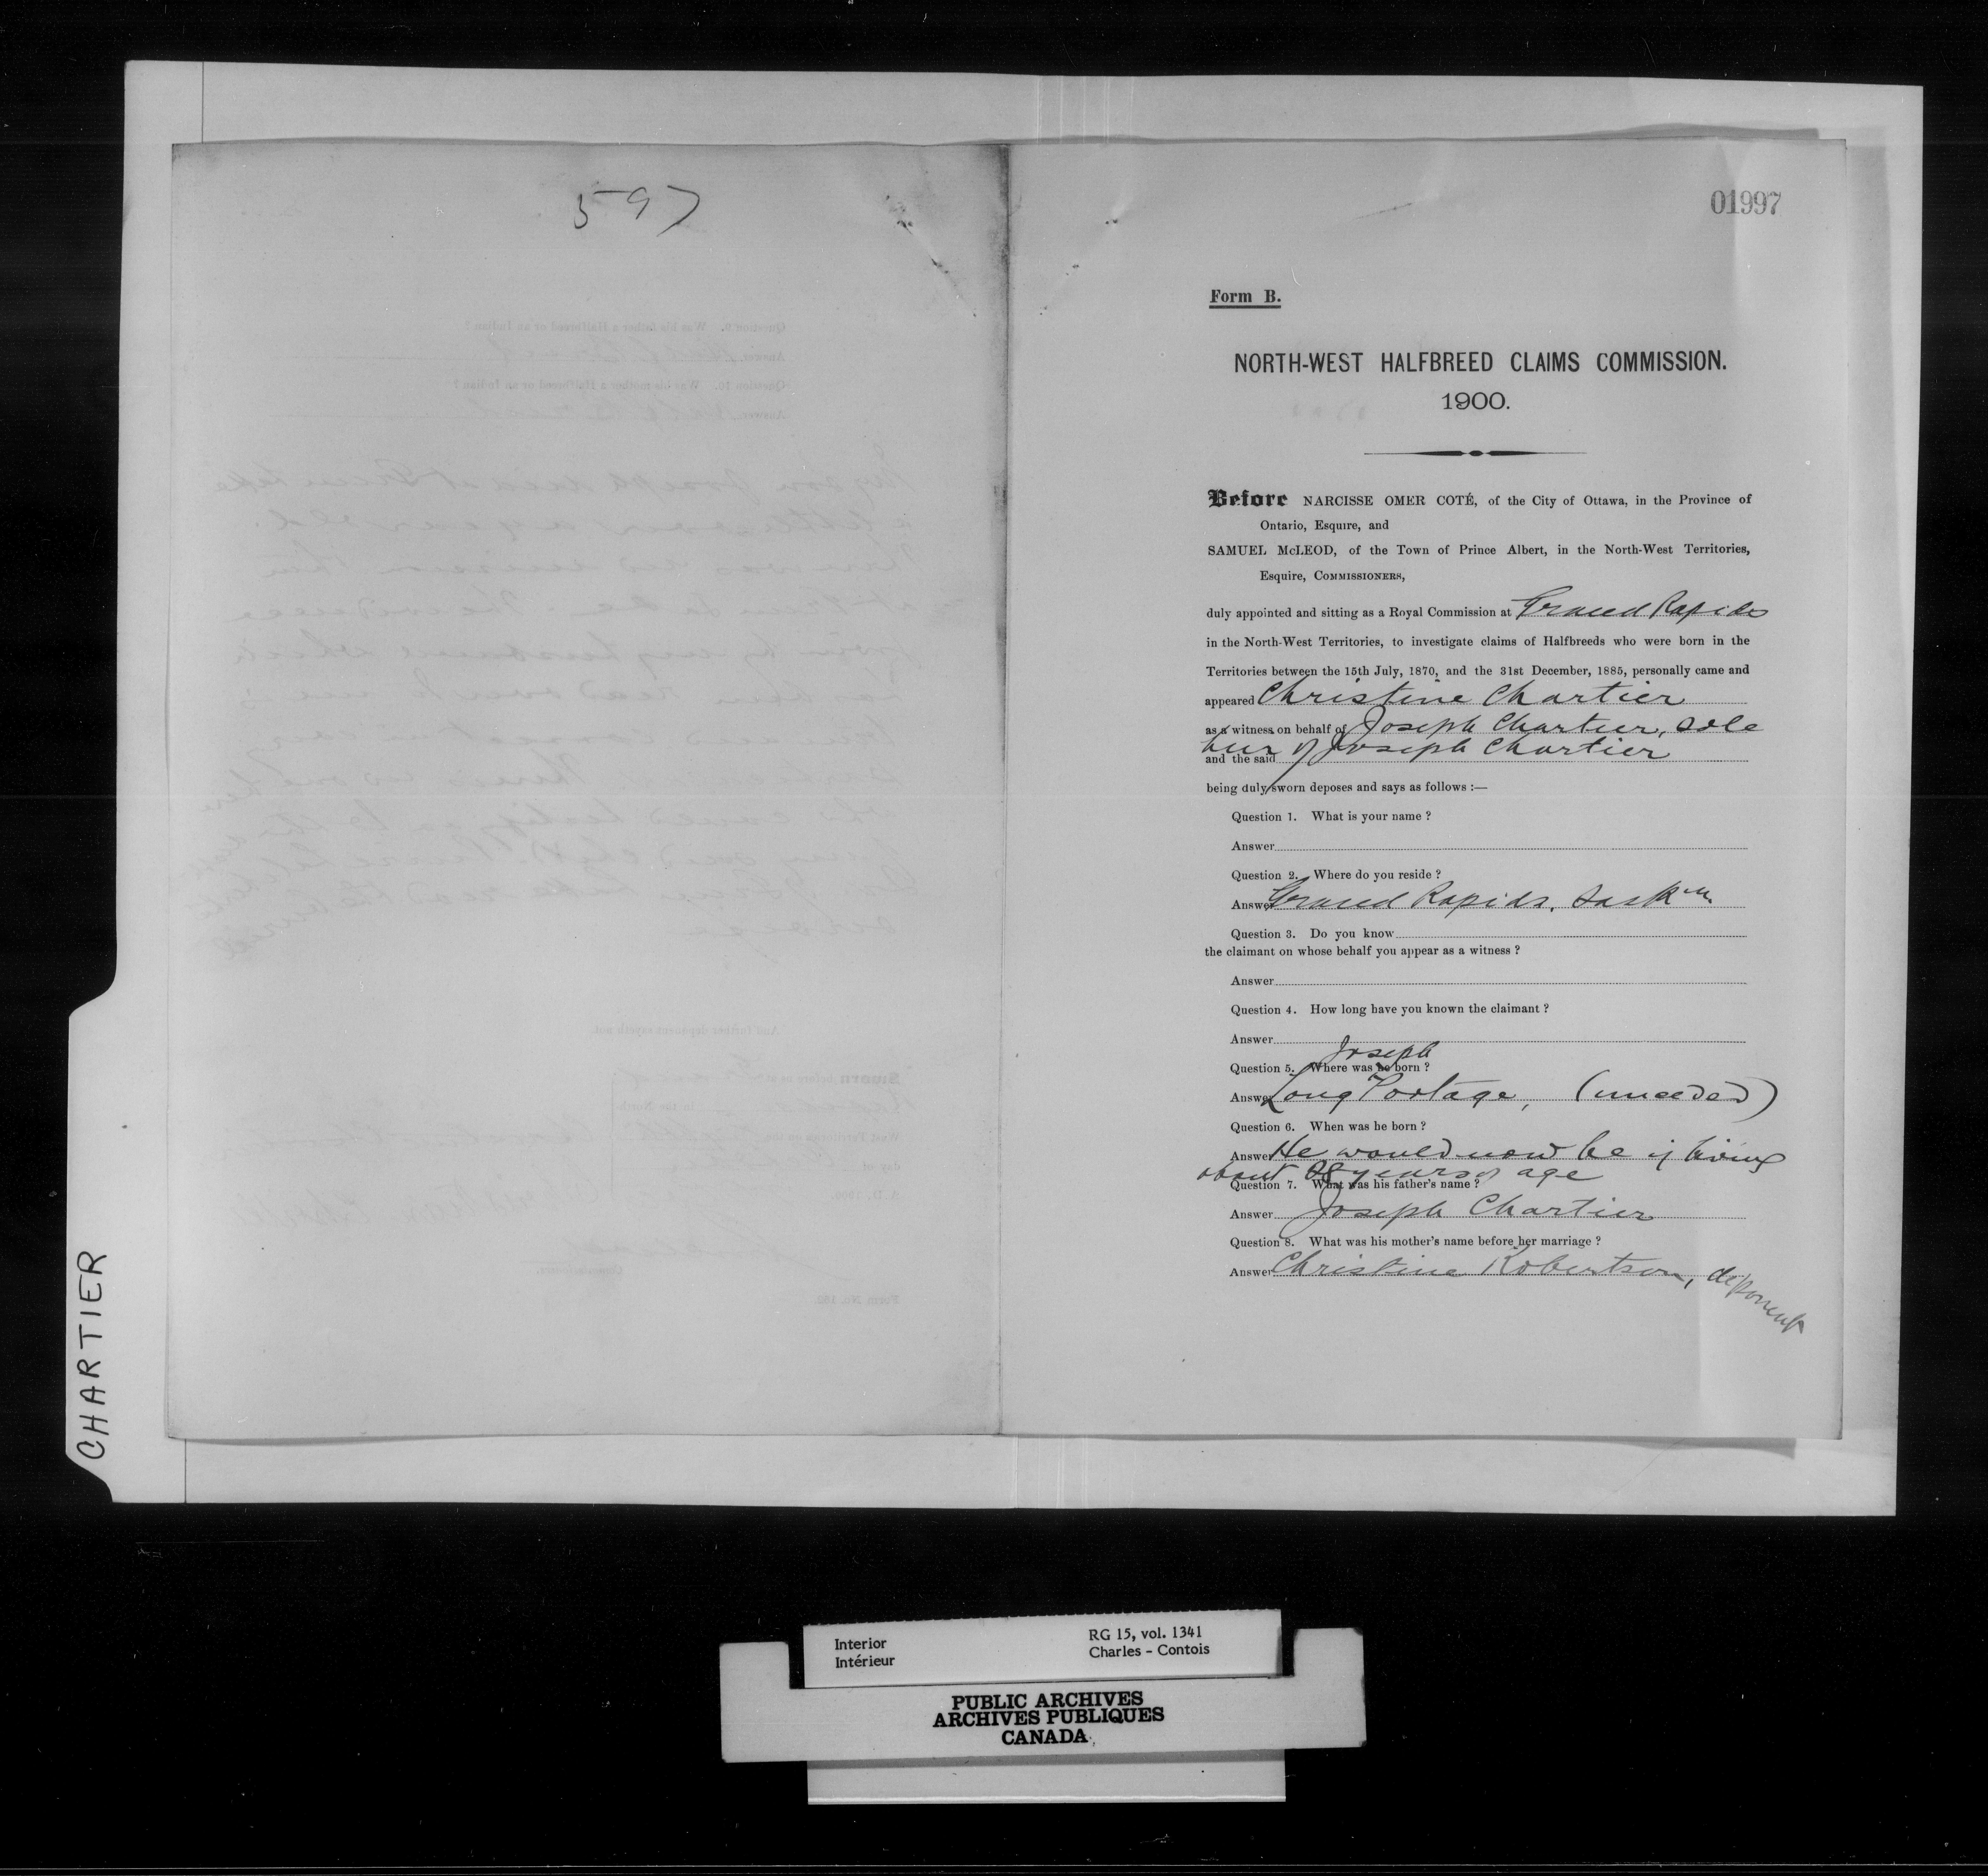 597
01997
Form B.
NORTH-WEST HALFBREED CLAIMS COMMISSION.
1900.
Before NARCISSE OMER COTÉ, of the City of Ottawa, in the Province of
Ontario, Esquire, and
SAMUEL McLEOD, of the Town of Prince Albert, in the North-West Territories,
Esquire, COMMISSIONERS,
duly appointed and sitting as a Royal Commission at Grand Rapids
in the North-West Territories, to investigate claims of Halfbreeds who were born in the
Territories between the 15th July, 1870, and the 31st December, 1885, personally came and
appeared Christine Chartier
as a witness on behalf of Joseph Chartier, sole
heir of Joseph Chartier
and the said
being duly sworn deposes and says as follows :—
Question 1. What is your name ?
Answer
Question 2. Where do you reside ?
Answer Grand Rapids, Sask
Question 3. Do you know
the claimant on whose behalf you appear as a witness ?
Answer
Question 4. How long have you known the claimant ?
Answer
Joseph
Question 5. Where was he born ?
Answer Long Portage, (unceded)
Question 6. When was he born ?
Answer He would now be if living
about years of age
Question 7. What was his father's name ?
Answer Joseph Chartier
Question 8. What was his mother's name before her marriage ?
Answer Christine Robertson, deponent
CHARTIER
Interior
Intérieur
RG 15, vol. 1341
Charles - Contois
PUBLIC ARCHIVES
ARCHIVES PUBLIQUES
CANADA